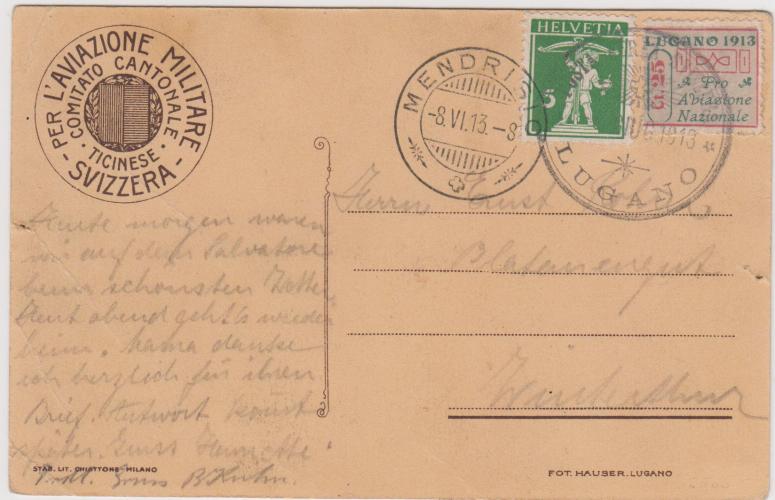 PER L'AVIAZIONE MILITARE
COMITATO CANTONALE
TICINESE
SVIZZERA
MENDRISIO
-8.VI.13.-8
HELVETIA
5
LUGANO 1913
Ct. 25
Pro
Aviazione
Nazionale
1913
LUGANO
Herrn Ernst
Heute morgen waren
wir auf dem Salvatore
beim schönsten Wetter
Heut abend geht's wieder
heim. Mama dankt
ich herzlich für ihren
Brief. Antwort kommt
später. Gruss
Winterthur
STAB. LIT. CHIATTONE-MILANO
FOT. HAUSER. LUGANO